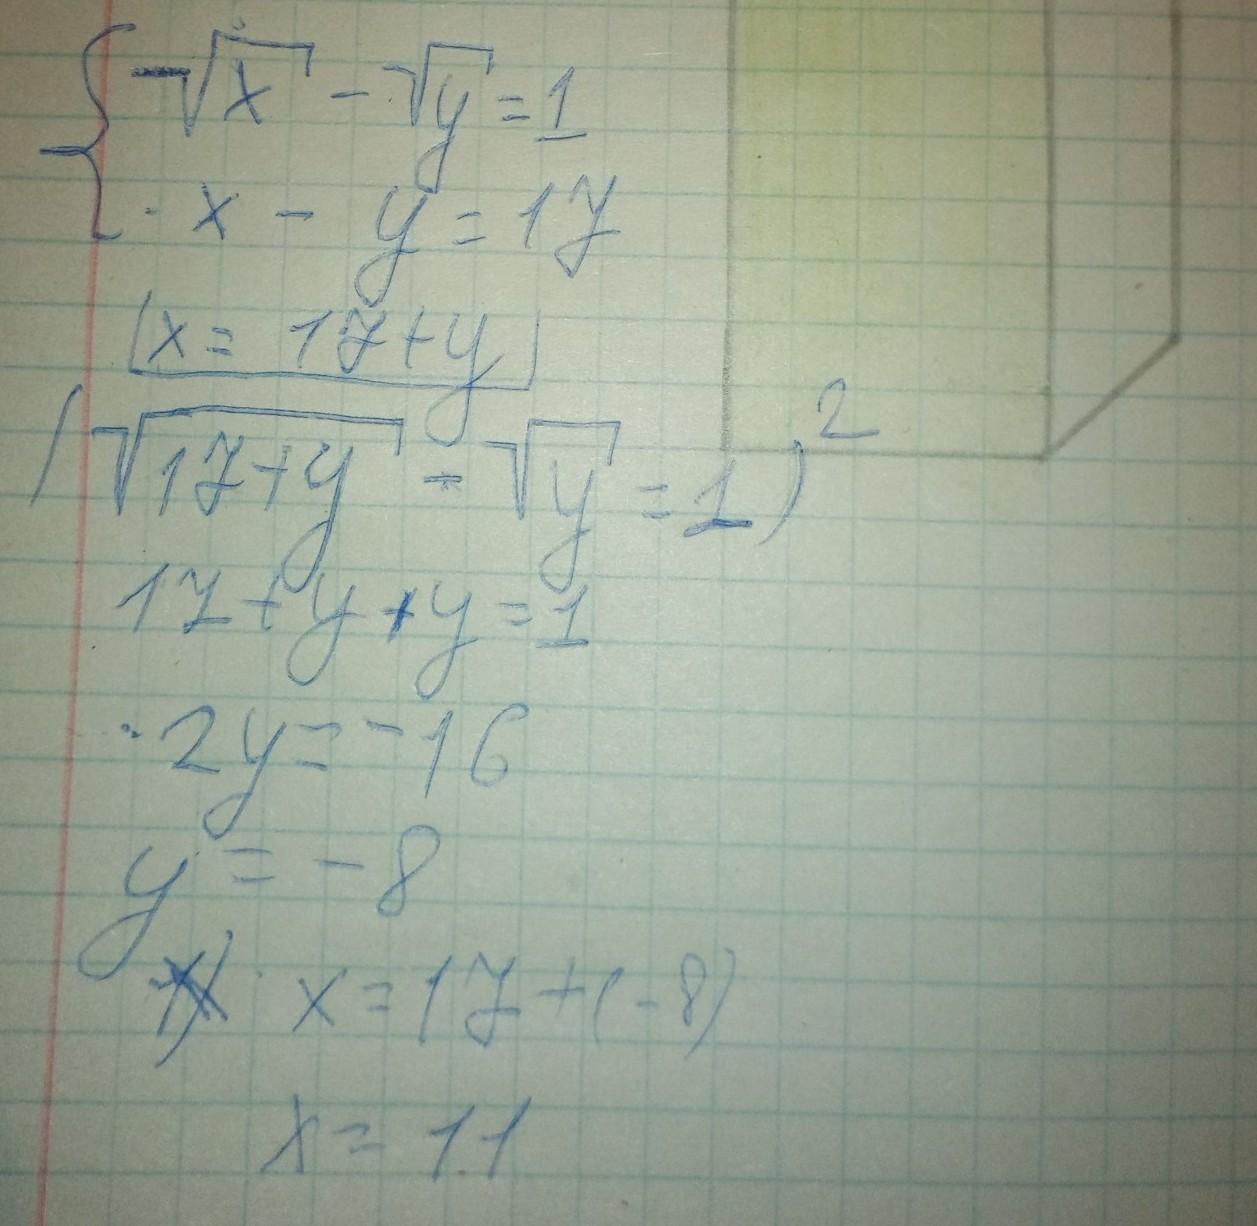 √x - √y = 1
x - y = 17
x = 17 + y
(√17+y - √y = 1)²
17 + y + y = 1
2y = -16
y = -8
x = 17 + (-8)
x = 11